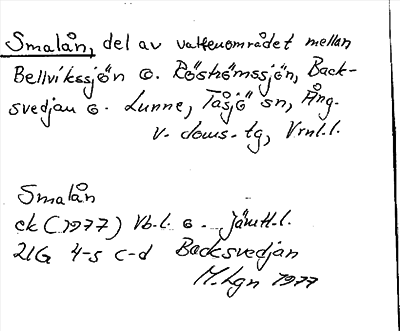 Smalån, del av vattenområdet mellan
Bellvikssjön o. Röshömssjön, Back-
svedjan o. Lunne, Tåsjö sn, Ång.
v. doms-tg, Vrnl.l.
Smalån
ek (1977) Vb.l. o. Jämtl.l.
21G 4-5 c-d Backsvedjan
M. Lgn 1977